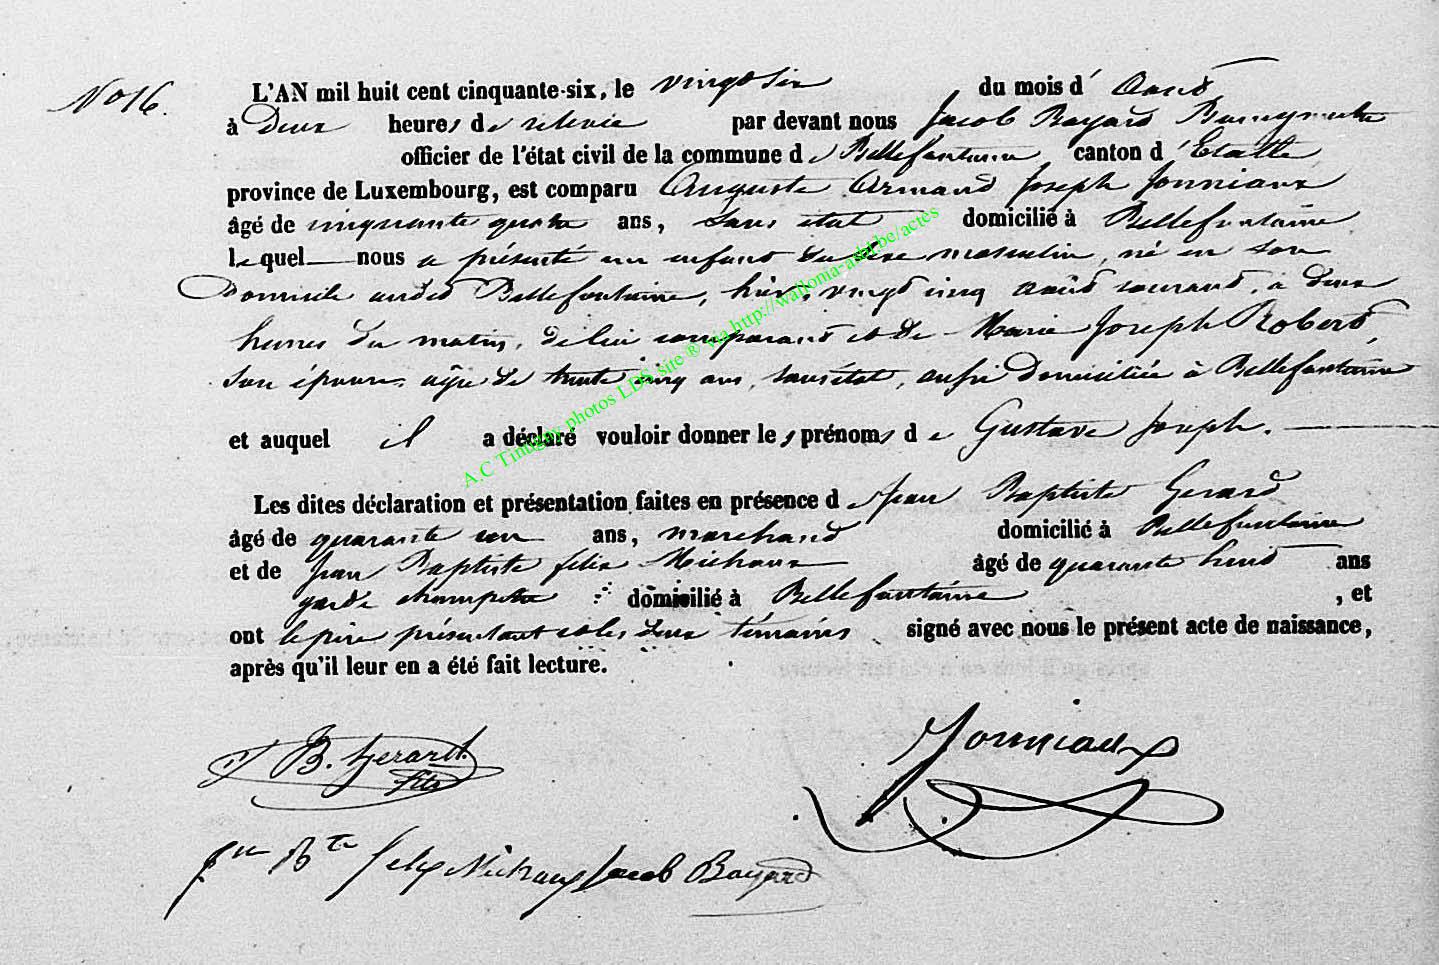 No 16.
L'AN mil huit cent cinquante-six, le vingt six du mois d' août
à Deux heures de relevée par devant nous Jacob Bayard Bourgmestre
officier de l'état civil de la commune de Bellefontaine, canton d'Etalle
province de Luxembourg, est comparu Auguste Armand Joseph Jonniaux
âgé de cinquante quatre ans, sans état domicilié à Bellefontaine
lequel nous a présenté un enfant du sexe masculin, né en son
Domicile audit Bellefontaine, hier, vingt cinq août courant, à deux
heures du matin, de lui comparant et de Marie Joseph Robert
son épouse, agée de trente cinq ans, sans état, aussi Domiciliée à Bellefontaine
et auquel il a déclaré vouloir donner les prénoms de Gustave Joseph.
Les dites déclaration et présentation faites en présence de Jean Baptiste Gerard
âgé de quarante un ans, marchand domicilié à Bellefontaine
et de Jean Baptiste felix Michaux âgé de quarante huit ans
garde champetre domicilié à Bellefontaine, et
ont le père présentant et les deux témoins signé avec nous le présent acte de naissance,
après qu'il leur en a été fait lecture.
A.C Tintigny photos LDS site ® via http://wallonia-asbl.be/actes
J B. Gerard. fils
Jonniaux
Jn Bte felix Michaux Jacob Bayard